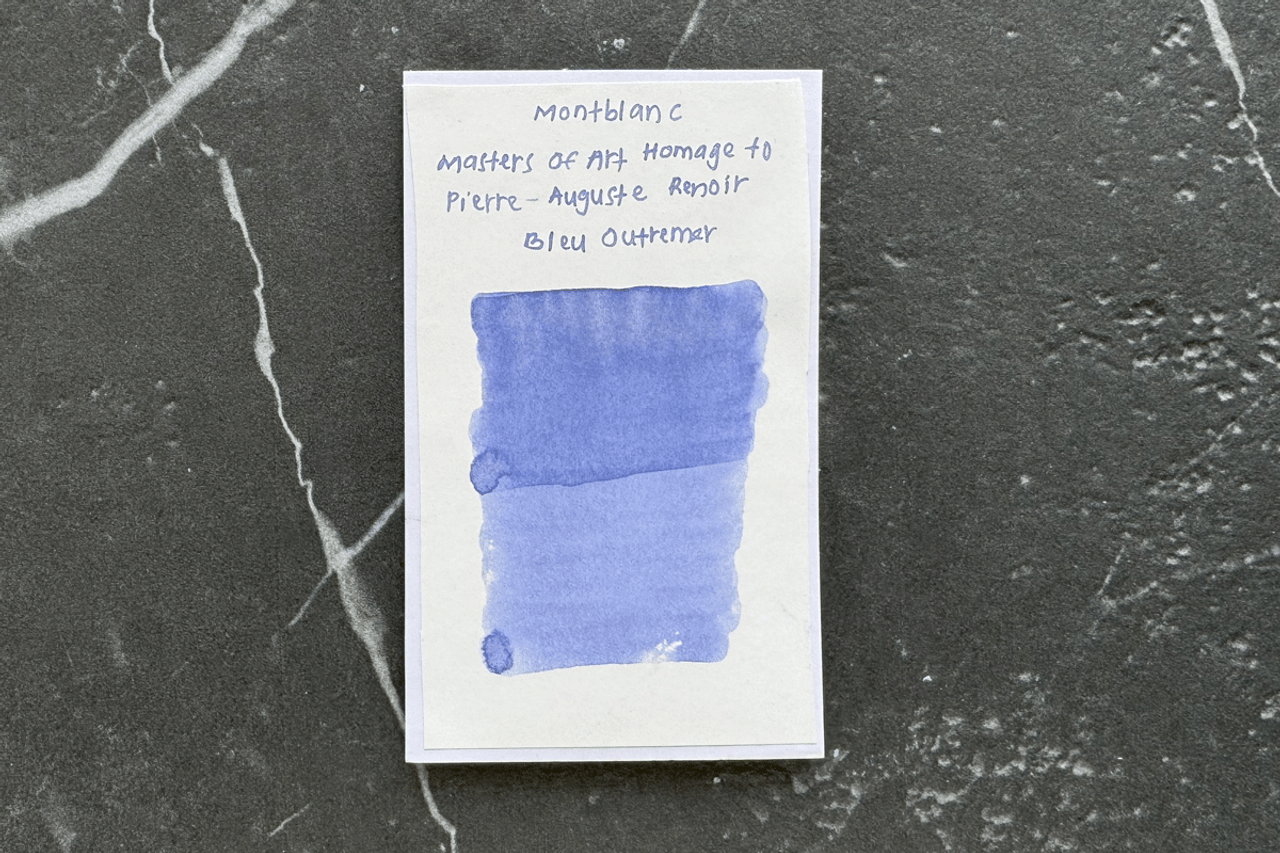 Montblanc
Masters of Art Homage to
Pierre-Auguste Renoir
Bleu Outremer